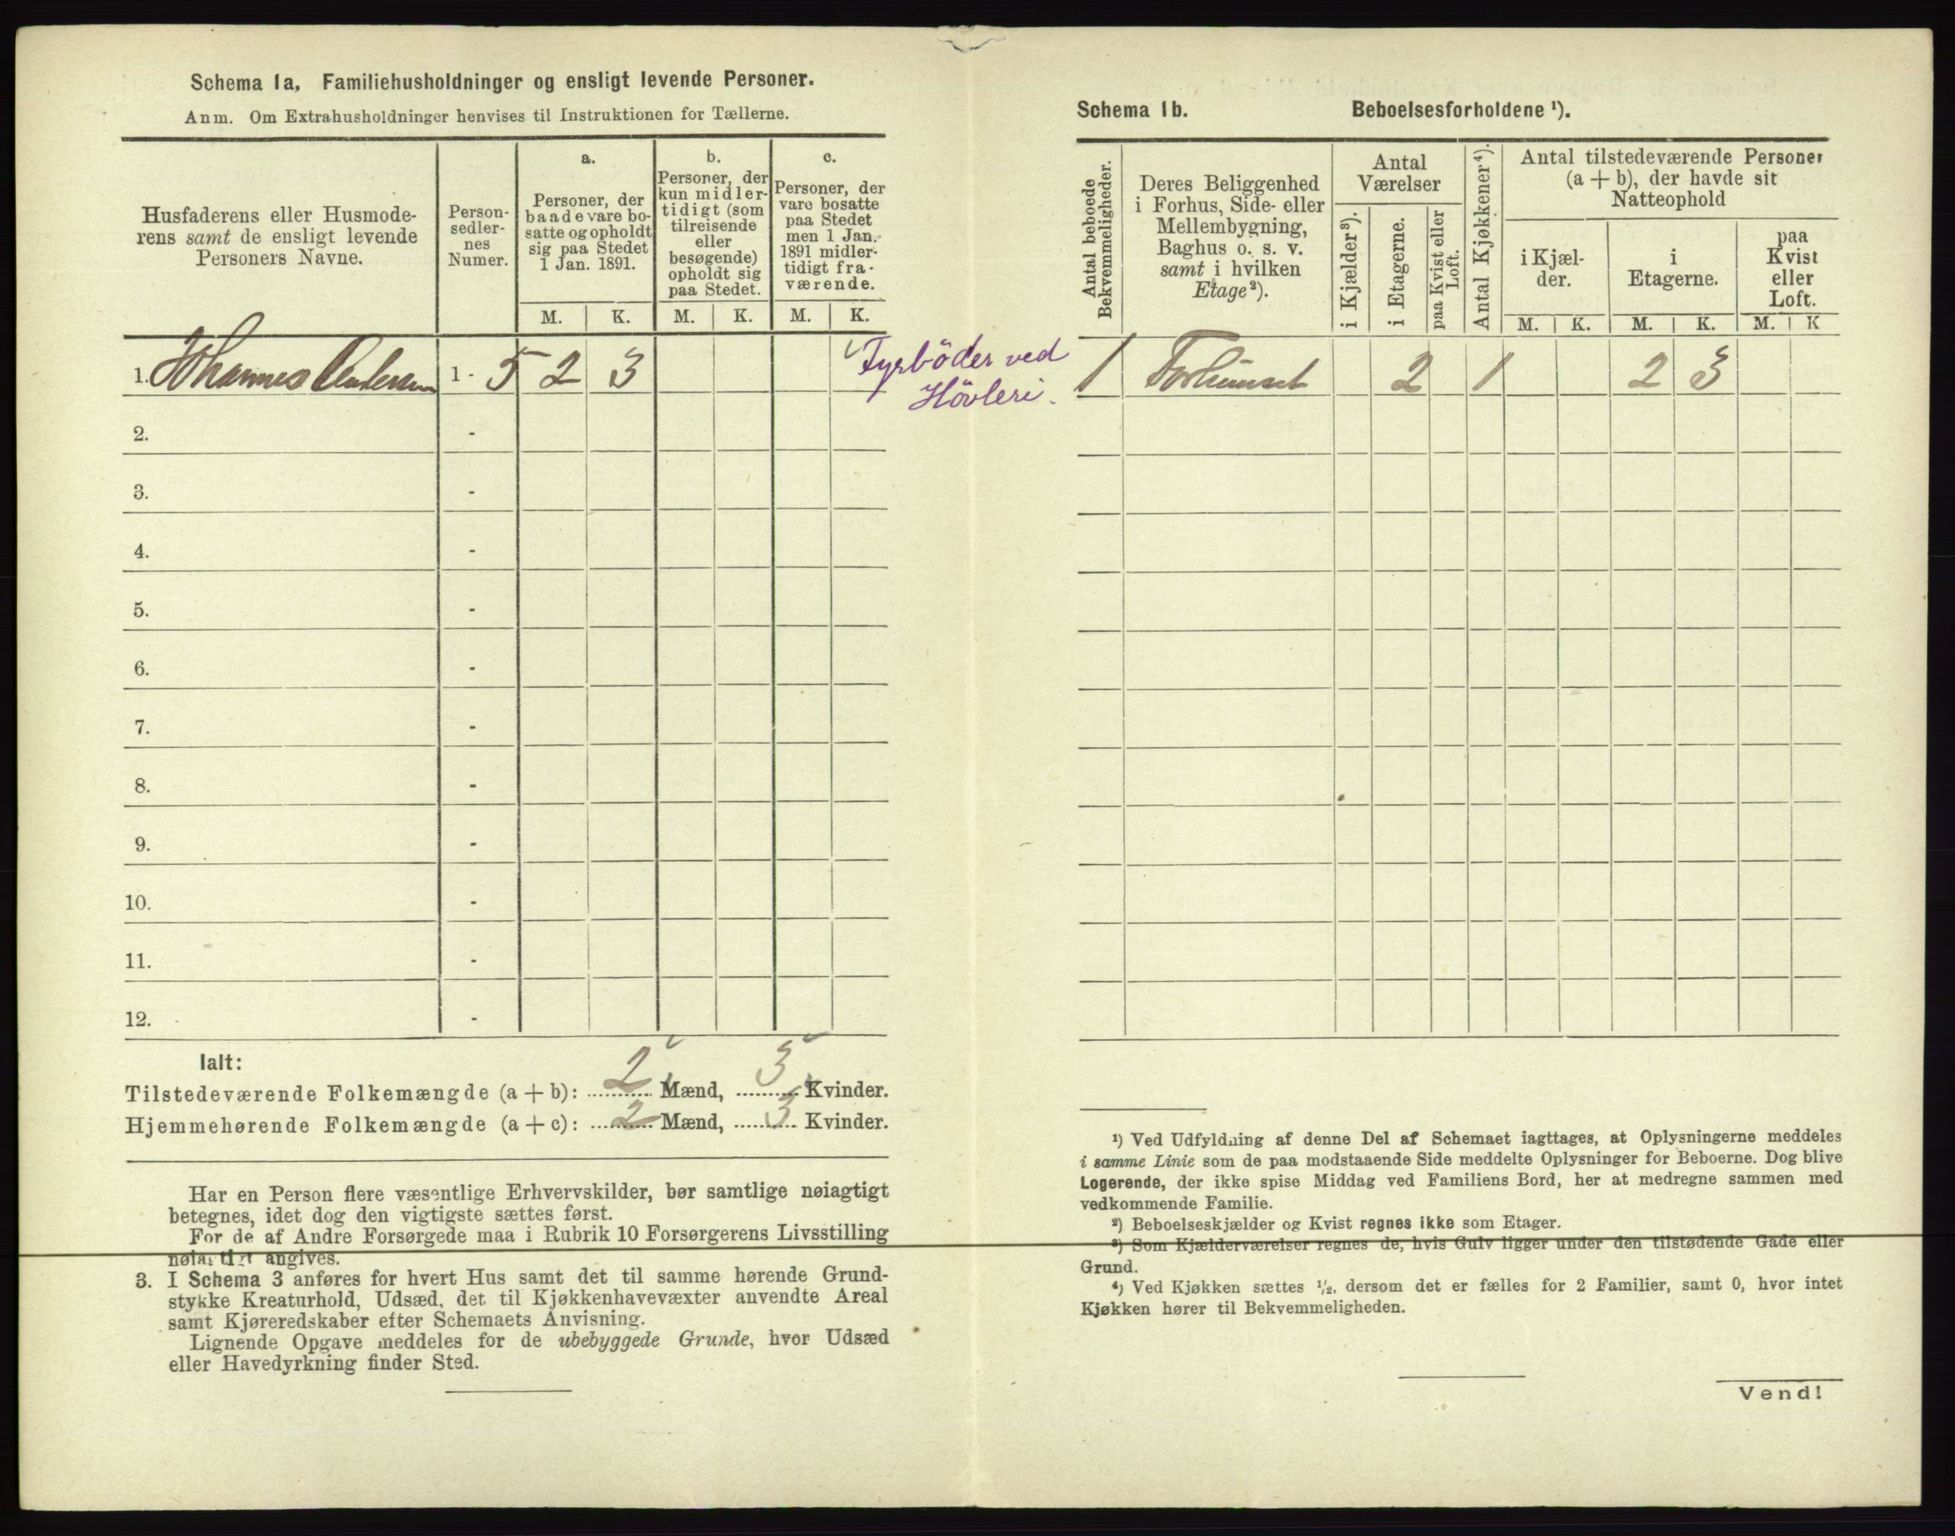 Schema 1a, Familiehusholdninger og ensligt levende Personer.
Anm. Om Extrahusholdninger henvises til Instruktionen for Tællerne.
Husfaderens eller Husmode-
rens samt de ensligt levende
Personers Navne.
Person-
sedler-
nes
Numer.
a.
Personer, der
baade vare bo-
satte og opholdt
sig paa Stedet
1 Jan. 1891.
M. K.
b.
Personer, der
kun midler-
tidigt (som
tilreisende
eller
besøgende)
opholdt sig
paa Stedet.
M. K.
c.
Personer, der
vare bosatte
paa Stedet
men 1 Jan.
1891 midler-
tidigt fra-
værende.
M. K.
1. Johannes Andersen 1 - 5 2 3
Fyrböder ved
Hövleri.
2. -
3. -
4. -
5. -
6. -
7. -
8. -
9. -
10. -
11. -
12. -
Ialt:
Tilstedeværende Folkemængde (a + b): 2 Mænd, 3 Kvinder.
Hjemmehørende Folkemængde (a + c): 2 Mænd, 3 Kvinder.
Har en Person flere væsentlige Erhvervskilder, bør samtlige nøiagtigt
betegnes, idet dog den vigtigste sættes først.
For de af Andre Forsørgede maa i Rubrik 10 Forsørgerens Livsstilling
nøiagtigt angives.
3. I Schema 3 anføres for hvert Hus samt det til samme hørende Grund-
stykke Kreaturhold, Udsæd, det til Kjøkkenhavevæxter anvendte Areal
samt Kjøreredskaber efter Schemaets Anvisning.
Lignende Opgave meddeles for de ubebyggede Grunde, hvor Udsæd
eller Havedyrkning finder Sted.
Schema 1b. Beboelsesforholdene ¹).
Antal beboede
Bekvemmeligheder.
Deres Beliggenhed
i Forhus, Side- eller
Mellembygning,
Baghus o. s. v.
samt i hvilken
Etage²).
Antal
Værelser
i Kjælder³).
i Etagerne.
paa Kvist eller
Loft.
Antal Kjøkkener⁴).
Antal tilstedeværende Personer
(a + b), der havde sit
Natteophold
i Kjæl-
der.
i
Etagerne.
paa
Kvist
eller
Loft.
M. K. M. K. M. K
1 Forhuuset 2 1 2 3
¹) Ved Udfyldning af denne Del af Schemaet iagttages, at Oplysningerne meddeles
i samme Linie som de paa modstaaende Side meddelte Oplysninger for Beboerne. Dog blive
Logerende, der ikke spise Middag ved Familiens Bord, her at medregne sammen med
vedkommende Familie.
²) Beboelseskjælder og Kvist regnes ikke som Etager.
³) Som Kjælderværelser regnes de, hvis Gulv ligger under den tilstødende Gade eller
Grund.
⁴) Ved Kjøkken sættes ½, dersom det er fælles for 2 Familier, samt 0, hvor intet
Kjøkken hører til Bekvemmeligheden.
Vend!